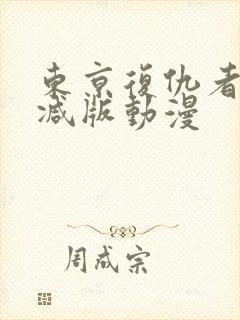 東京復仇者
减版動漫
周成宗